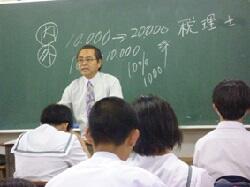 内 10.000→20000 税理士
外 10.000
10%
1000